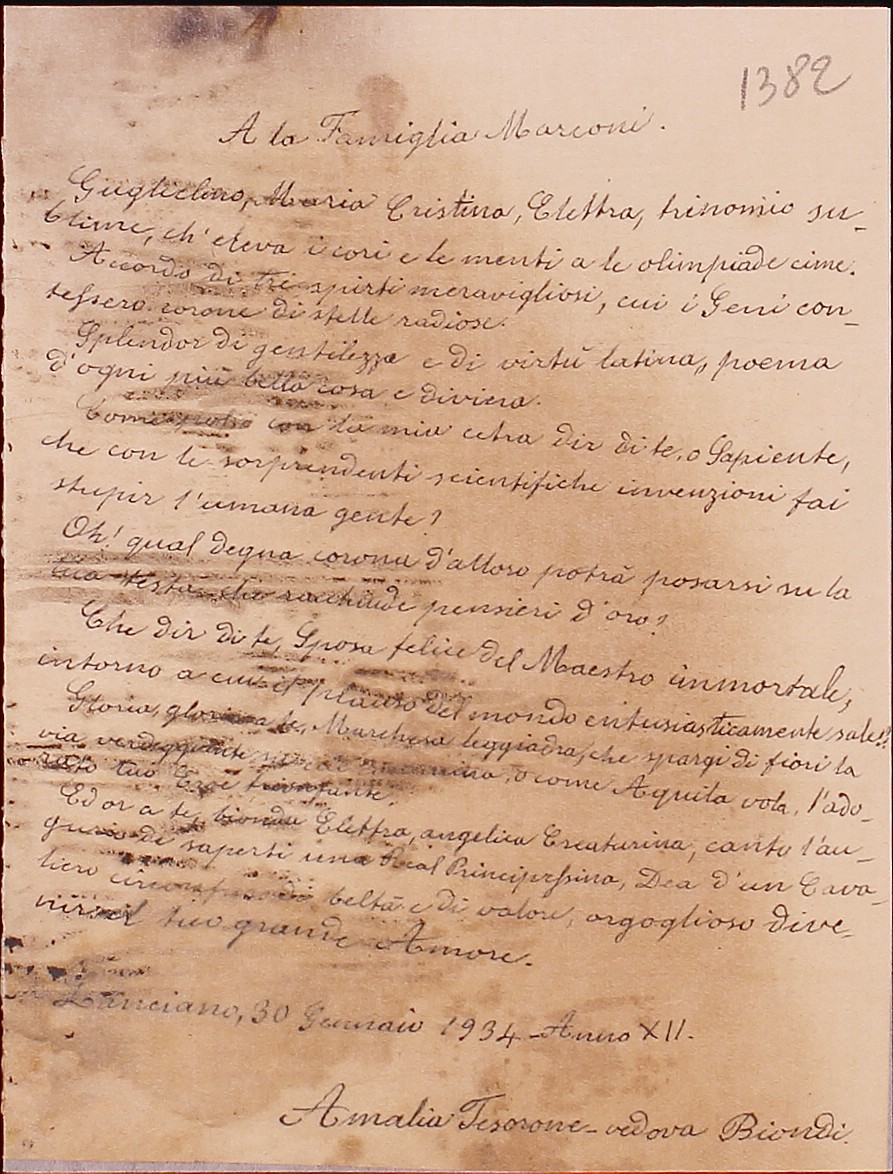 1382
A la Famiglia Marconi.
Guglielmo, Maria Cristina, Elettra, trinomio su-
blime, ch'eleva i cori e le menti a le olimpiade cime.
Accordo di tre spirti meravigliosi, cui i Geni con-
tessero corone di stelle radiose.
Splendor di gentilezza e di virtù latina, poema
d'ogni più bella cosa e divina.
Come potrò con la mia cetra dir di te, o Sapiente,
che con le sorprendenti scientifiche invenzioni fai
stupir l'umana gente?
Oh! qual degna corona d'alloro potrà posarsi su la
tua testa che racchiude pensieri d'oro?
Che dir di te, Sposa felice del Maestro immortale,
intorno a cui il plauso del mondo entusiasticamente sale!?
Gloria, gloria a te, Marchesa leggiadra, che spargi di fiori la
via verdeggiante su cui cammina, o come Aquila vola, l'ado-
rato tuo Eroe trionfante.
Ed or a te, bionda Elettra, angelica Creaturina, canto l'au-
gurio di saperti una Real Principessina, Dea d'un Cava-
liero circonfuso di beltà e di valore, orgoglioso dive-
nir il tuo grande Amore.
Lanciano, 30 Gennaio 1934 - Anno XII.
Amalia Tesorone - vedova Biondi.